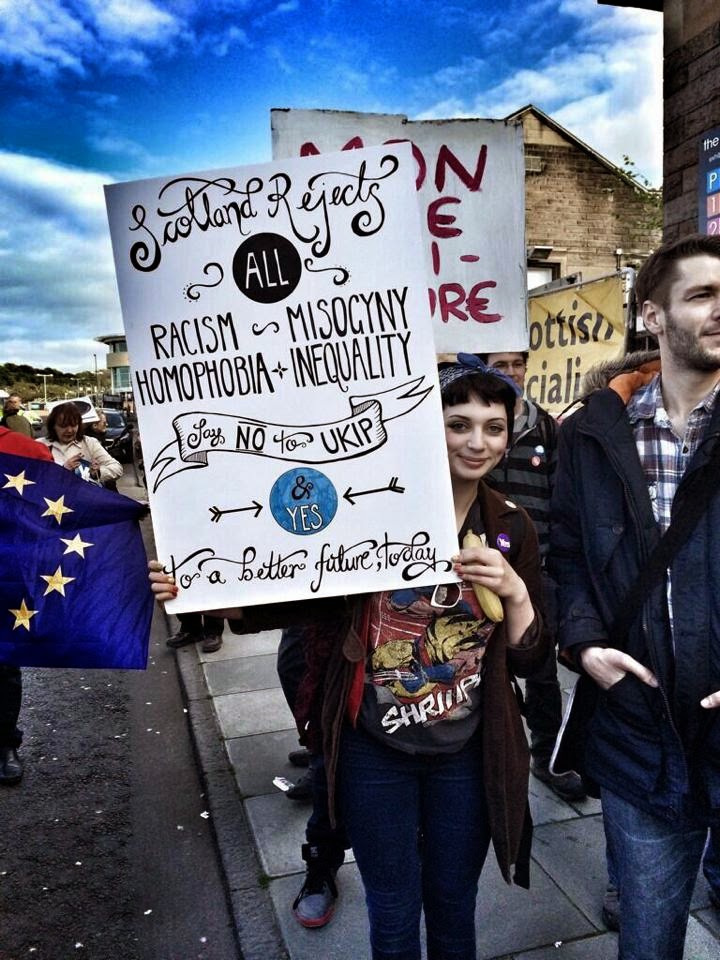 Scotland Rejects
ALL
RACISM ~ MISOGYNY
HOMOPHOBIA + INEQUALITY
Say NO to UKIP
&
YES
to a better future, today
ON
E
I-
RE
ottish
ciali
the
P
1
2
SHRIMP